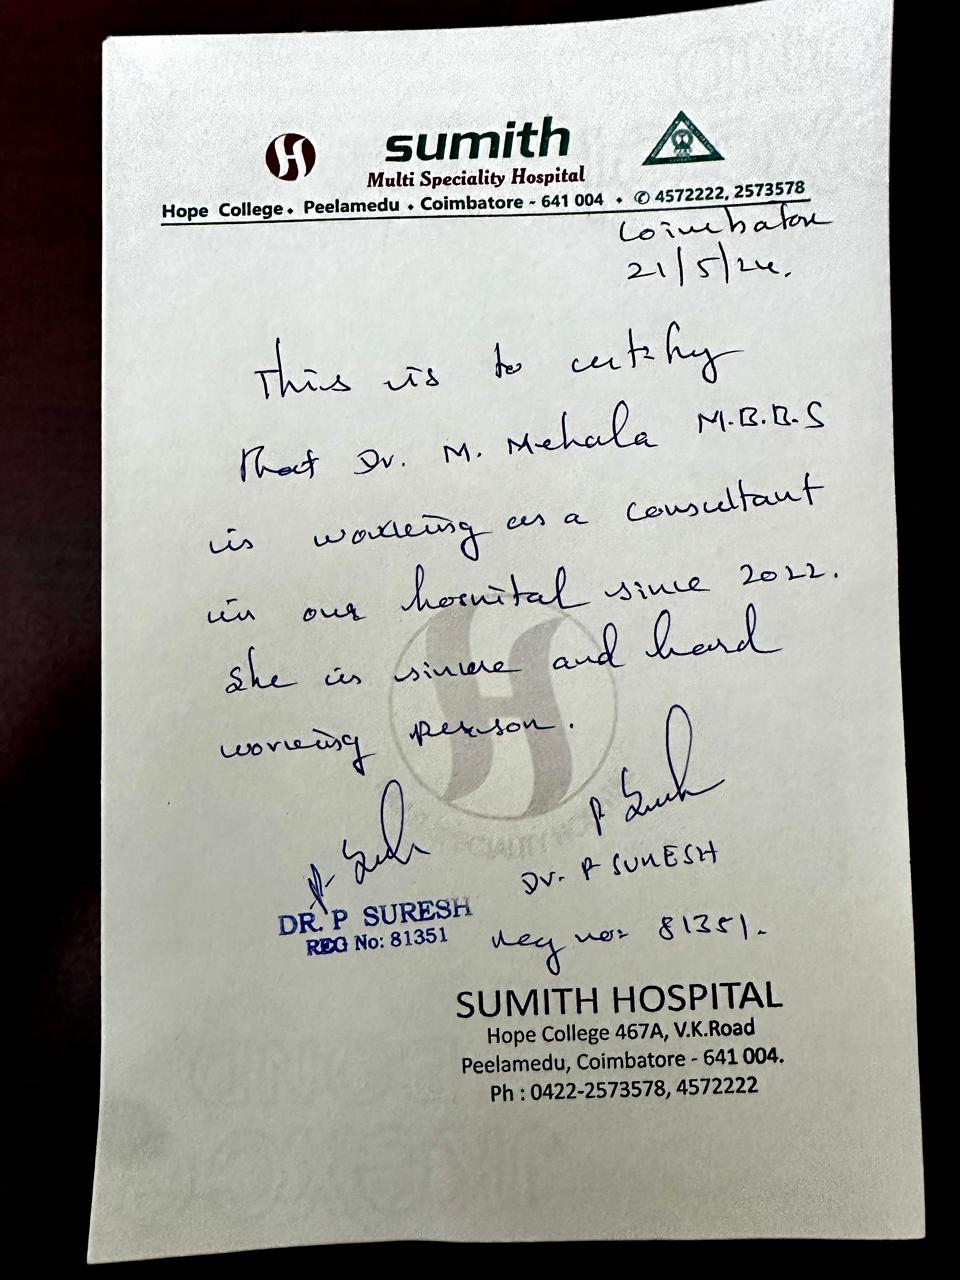 sumith
Multi Speciality Hospital
Hope College • Peelamedu • Coimbatore - 641 004 • ✆ 4572222, 2573578
Coimbatore
21/5/24.
This is to certify
that Dr. M. Mehala M.B.B.S
is working as a consultant
in our hospital since 2022.
She is sincere and hard
working person.
P. Suresh
P Suresh
DR. P SURESH
REG No: 81351
Dr. P SURESH
Reg no: 81351.
SUMITH HOSPITAL
Hope College 467A, V.K.Road
Peelamedu, Coimbatore - 641 004.
Ph : 0422-2573578, 4572222